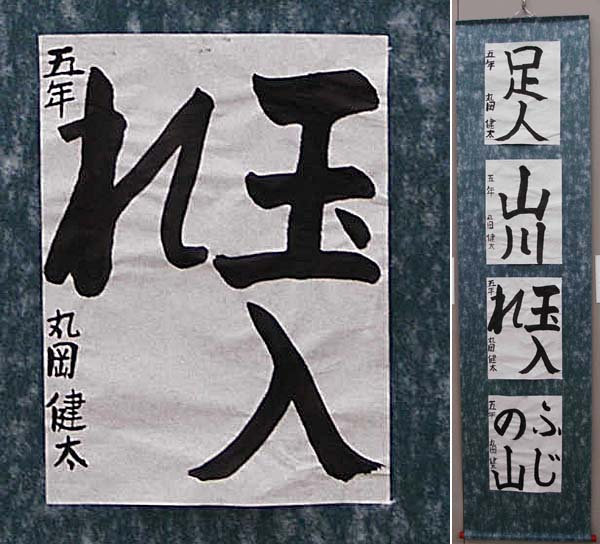 玉入
れ
五年
丸岡健太
足人
五年
丸岡健太
山川
五年
丸岡健太
玉入
れ
五年
丸岡健太
ふじ
の山
五年
丸岡健太